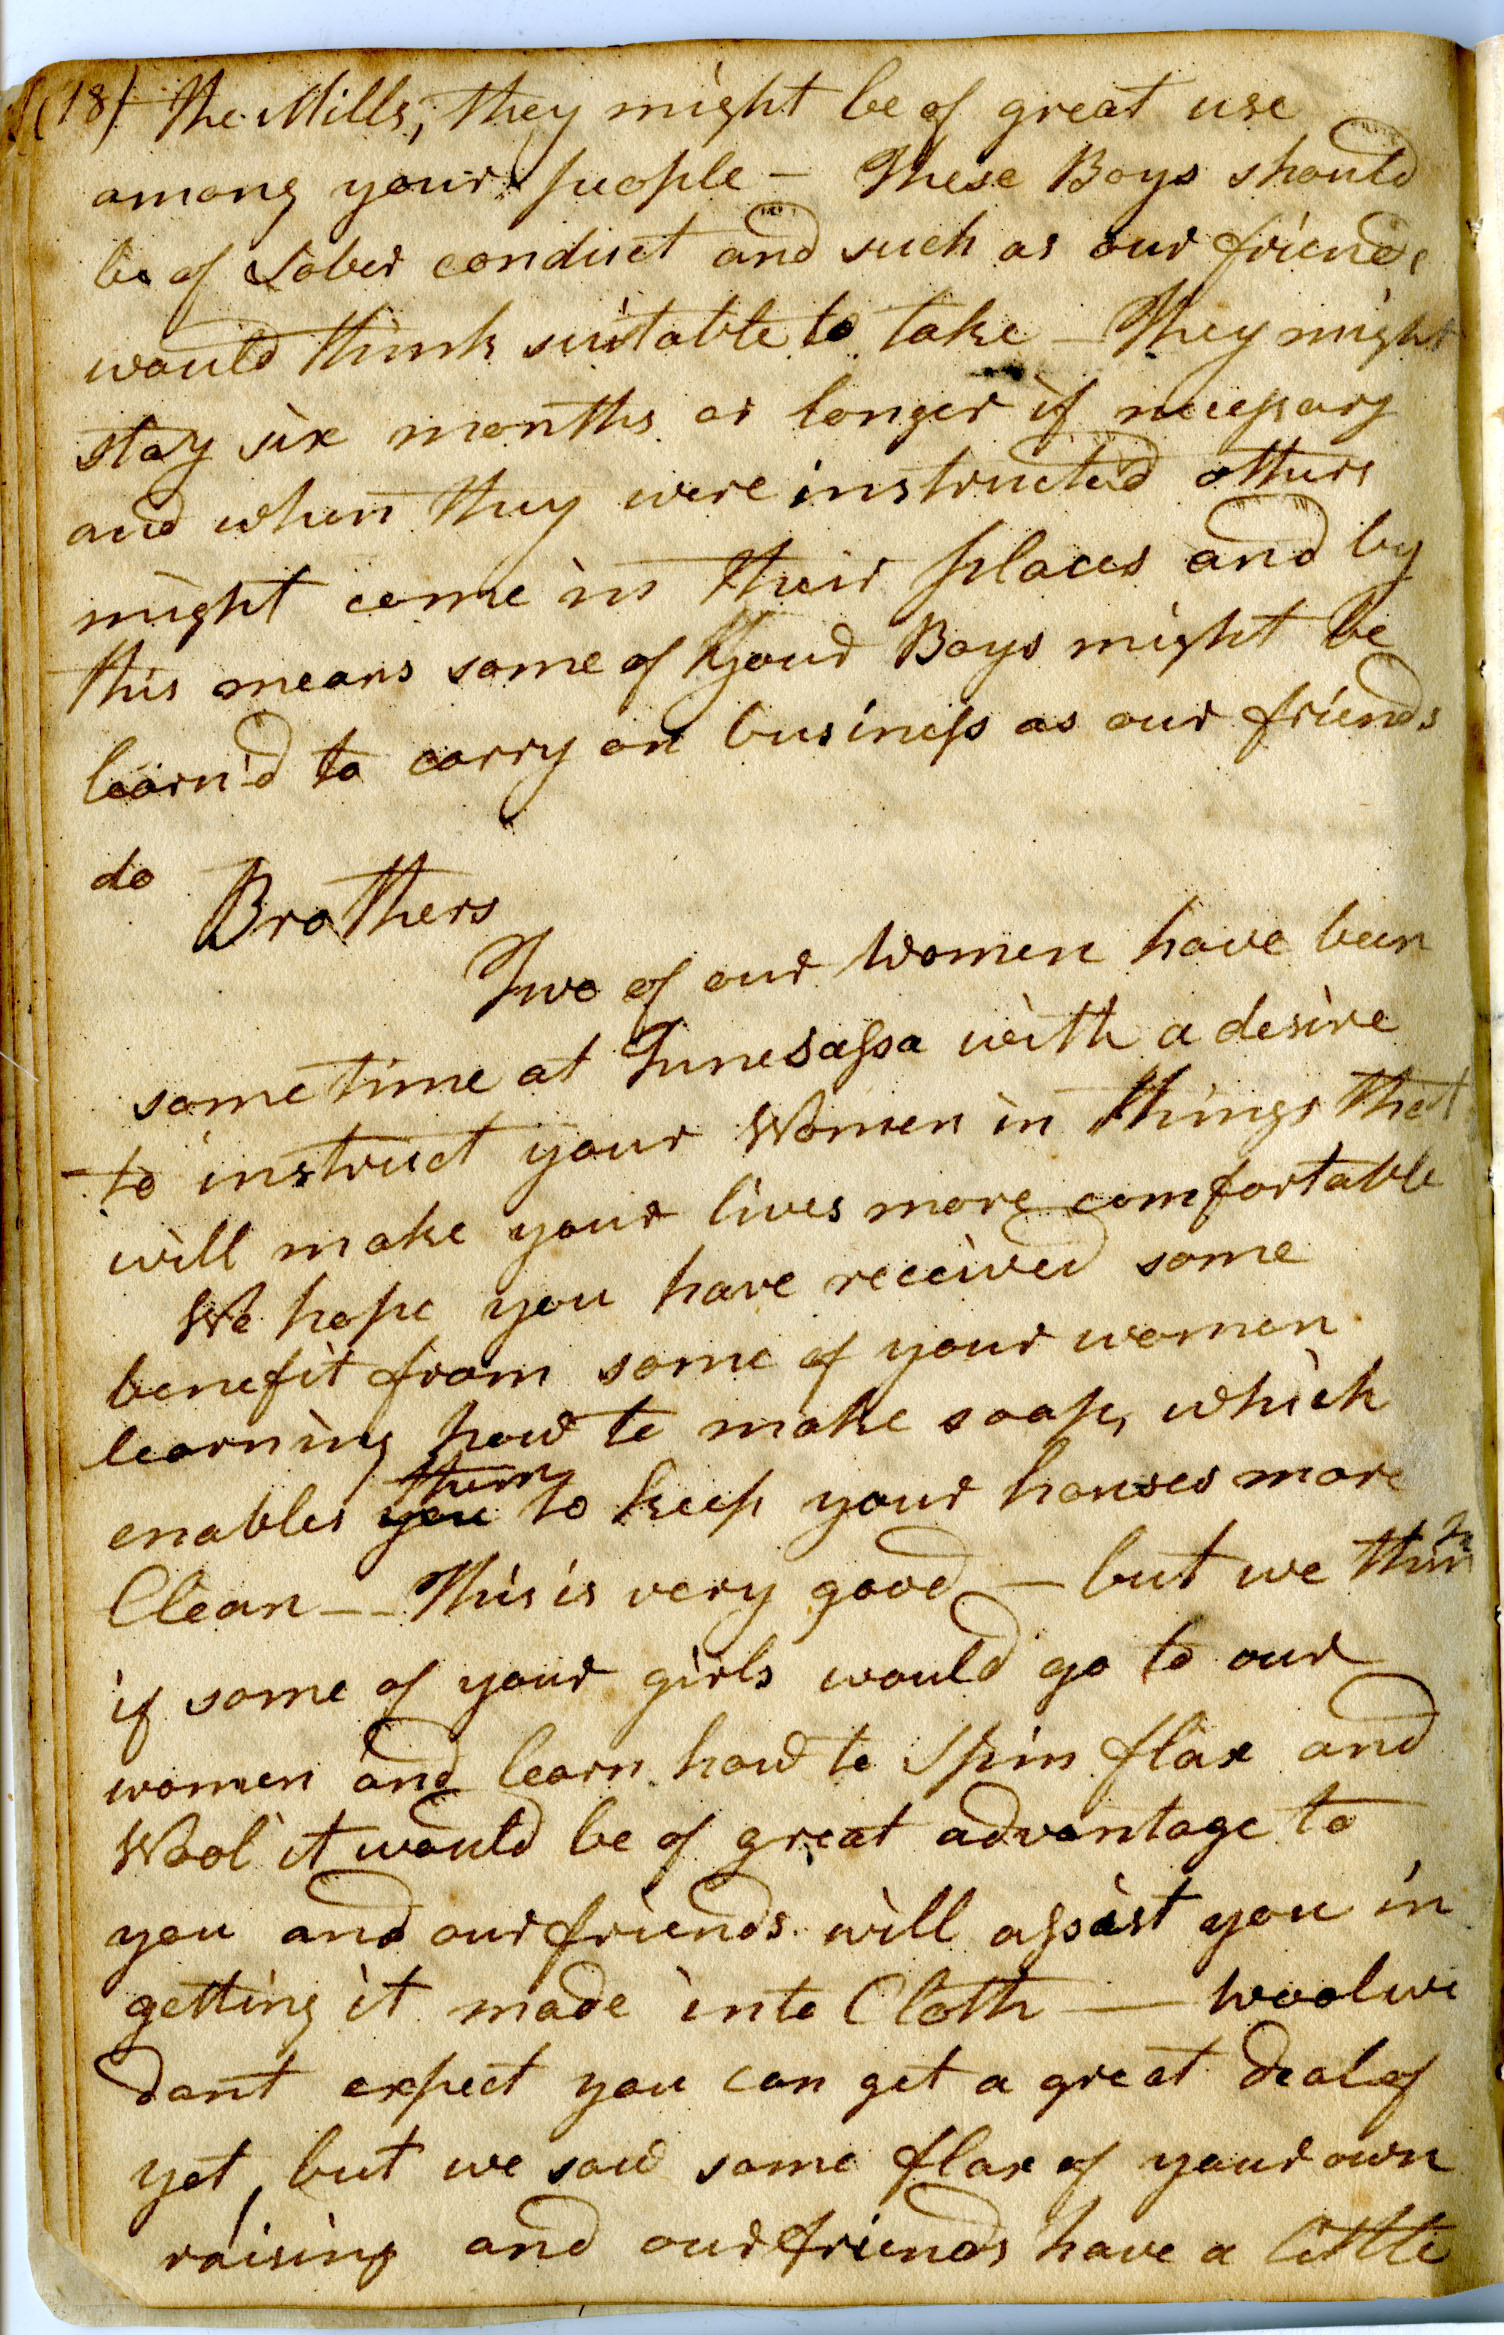 (18) the Mills, they might be of great use
among your people – These Boys should
be of Sober conduct and such as our friends
would think suitable to take – They might
stay six months or longer if necessary
and when they were instructed others
might come in their places and by
this means some of Your Boys might be
learn'd to carry on business as our friends
do
Brothers
Two of our Women have been
some time at Tunesassa with a desire
to instruct your Women in things that
will make your lives more comfortable
We hope you have received some
benefit from some of your women
learning how to make soap, which
them
enables you to keep your houses more
Clean – – This is very good – but we think
if some of your girls would go to our
women and learn how to Spin flax and
Wool it would be of great advantage to
you and our friends will assist you in
getting it made into Cloth — Wool we
dont expect you can get a great deal of
yet, but we saw some flax of your own
raising and our friends have a little